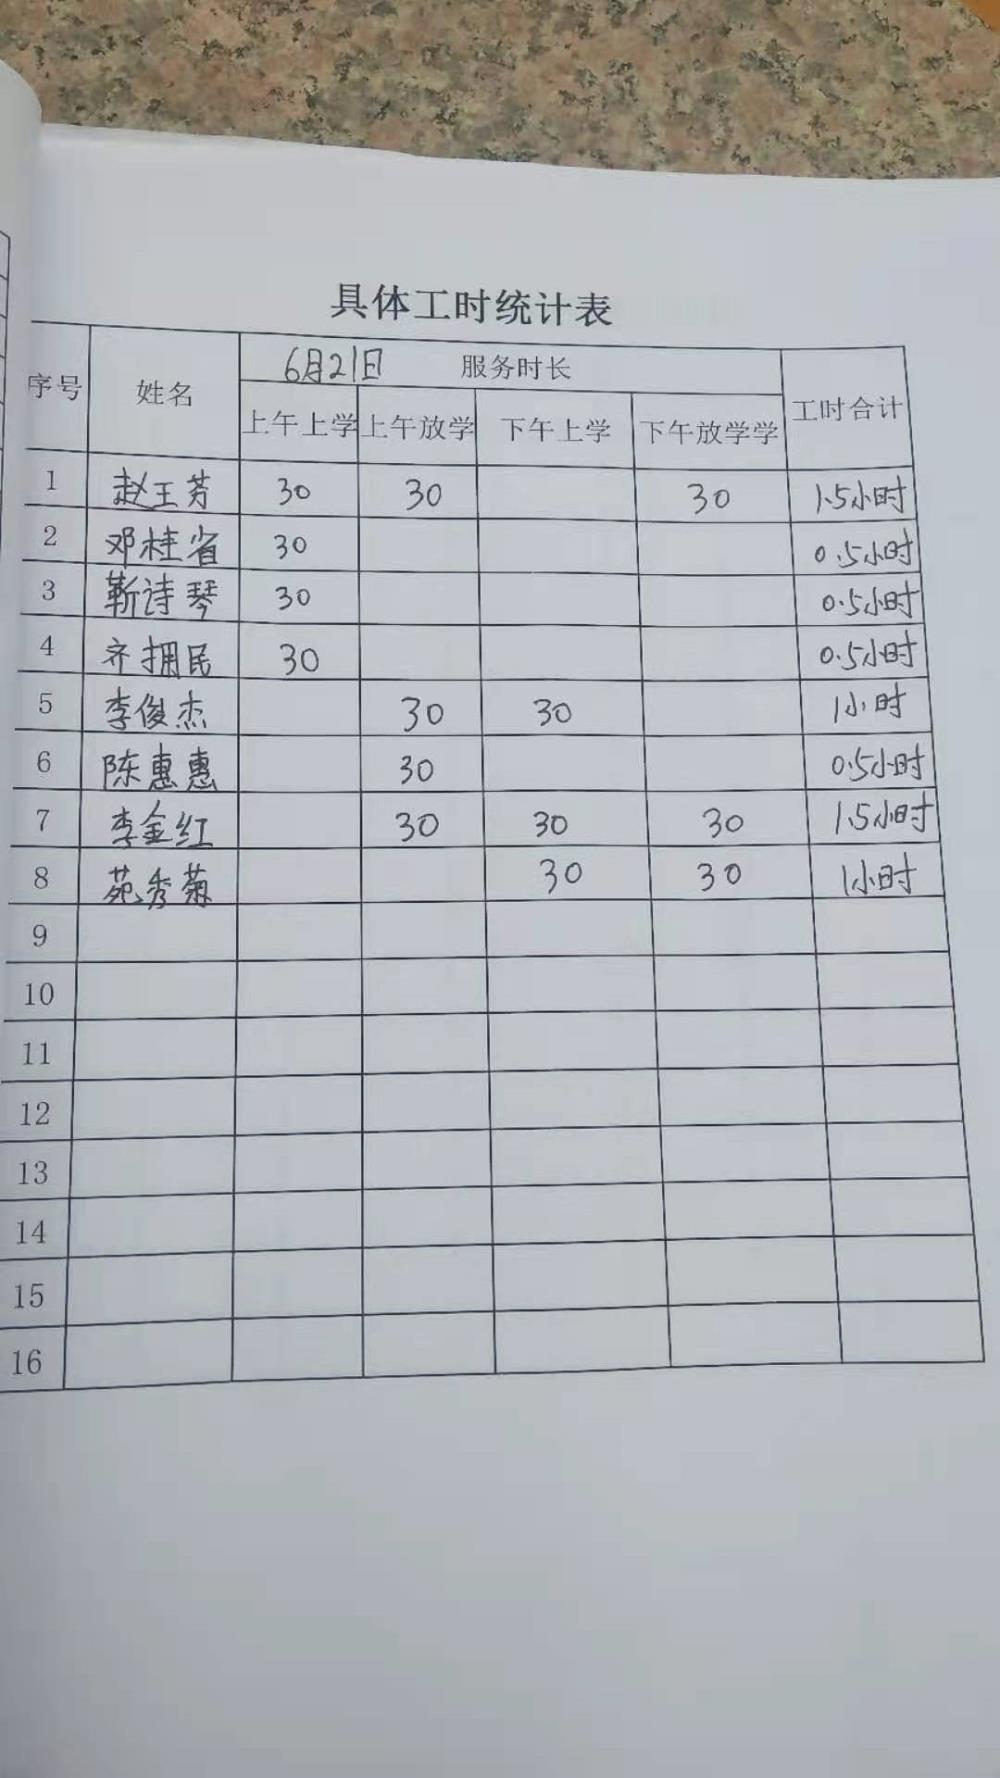 具体工时统计表
序号 姓名 6月21日 服务时长 工时合计
上午上学 上午放学 下午上学 下午放学学
1 赵王芳 30 30 30 1.5小时
2 邓桂省 30 0.5小时
3 靳诗琴 30 0.5小时
4 齐拥民 30 0.5小时
5 李俊杰 30 30 1小时
6 陈惠惠 30 0.5小时
7 李金红 30 30 30 1.5小时
8 苑秀菊 30 30 1小时
9
10
11
12
13
14
15
16